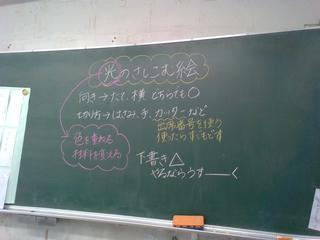 光のさしこむ絵
向き→たて、横 どちらでも○
切り方→はさみ、手、カッターなど
出席番号を使う
使ったらすぐもどす
色を重ねる
材料を変える
下書き△
やるならうす――く